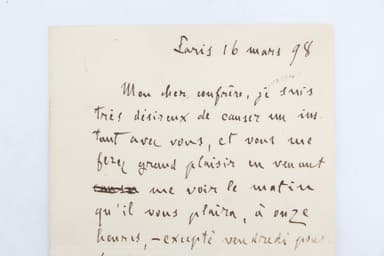 Paris 16 mars 98
Mon cher confrère, je suis
très désireux de causer un ins-
tant avec vous, et vous me
ferez grand plaisir en venant
me voir le matin
qu'il vous plaira, à onze
heures, – excepté vendredi pour